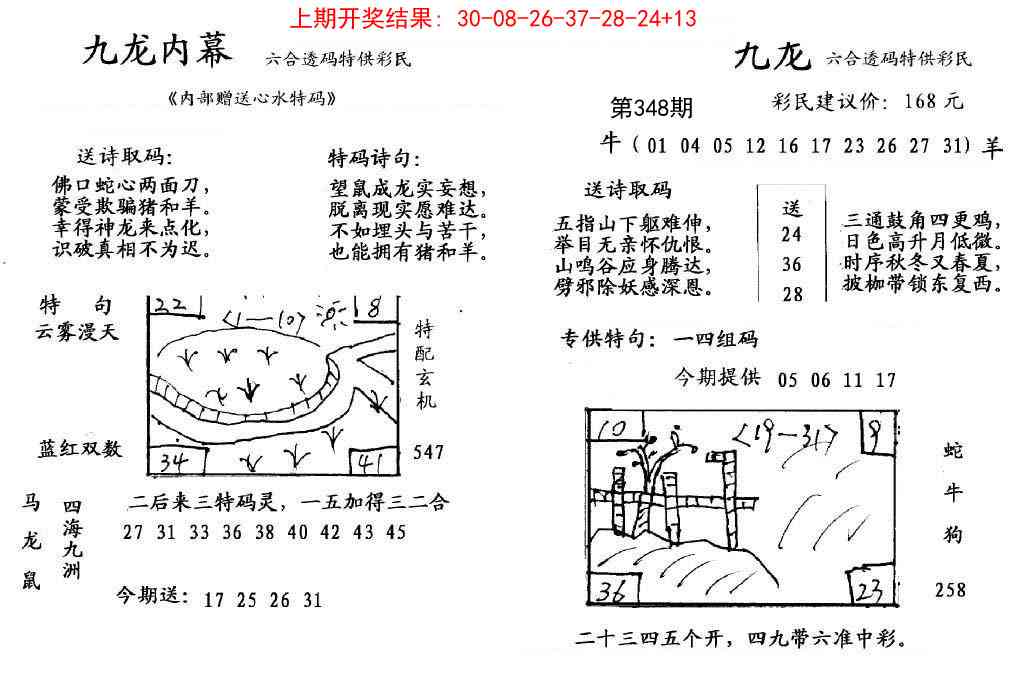 上期开奖结果: 30-08-26-37-28-24+13
九龙内幕 六合透码特供彩民
《内部赠送心水特码》
送诗取码:
佛口蛇心两面刀,
蒙受欺骗猪和羊。
幸得神龙来点化,
识破真相不为迟。
特码诗句:
望鼠成龙实妄想,
脱离现实愿难达。
不如埋头与苦干,
也能拥有猪和羊。
特 句
云雾漫天
蓝红双数
22
8
<1—10>
34
41
特配玄机
547
马龙鼠
四海九洲
二后来三特码灵，一五加得三二合
27 31 33 36 38 40 42 43 45
今期送: 17 25 26 31
九龙 六合透码特供彩民
第348期
彩民建议价: 168 元
牛 (01 04 05 12 16 17 23 26 27 31) 羊
送诗取码
五指山下躯难伸,
举目无亲怀仇恨。
山鸣谷应身腾达,
劈邪除妖感深恩。
送
24
36
28
三通鼓角四更鸡,
日色高升月低微。
时序秋冬又春夏,
披枷带锁东复西。
专供特句: 一四组码
今期提供 05 06 11 17
10
<19—31>
9
36
23
蛇
牛
狗
258
二十三四五个开，四九带六准中彩。